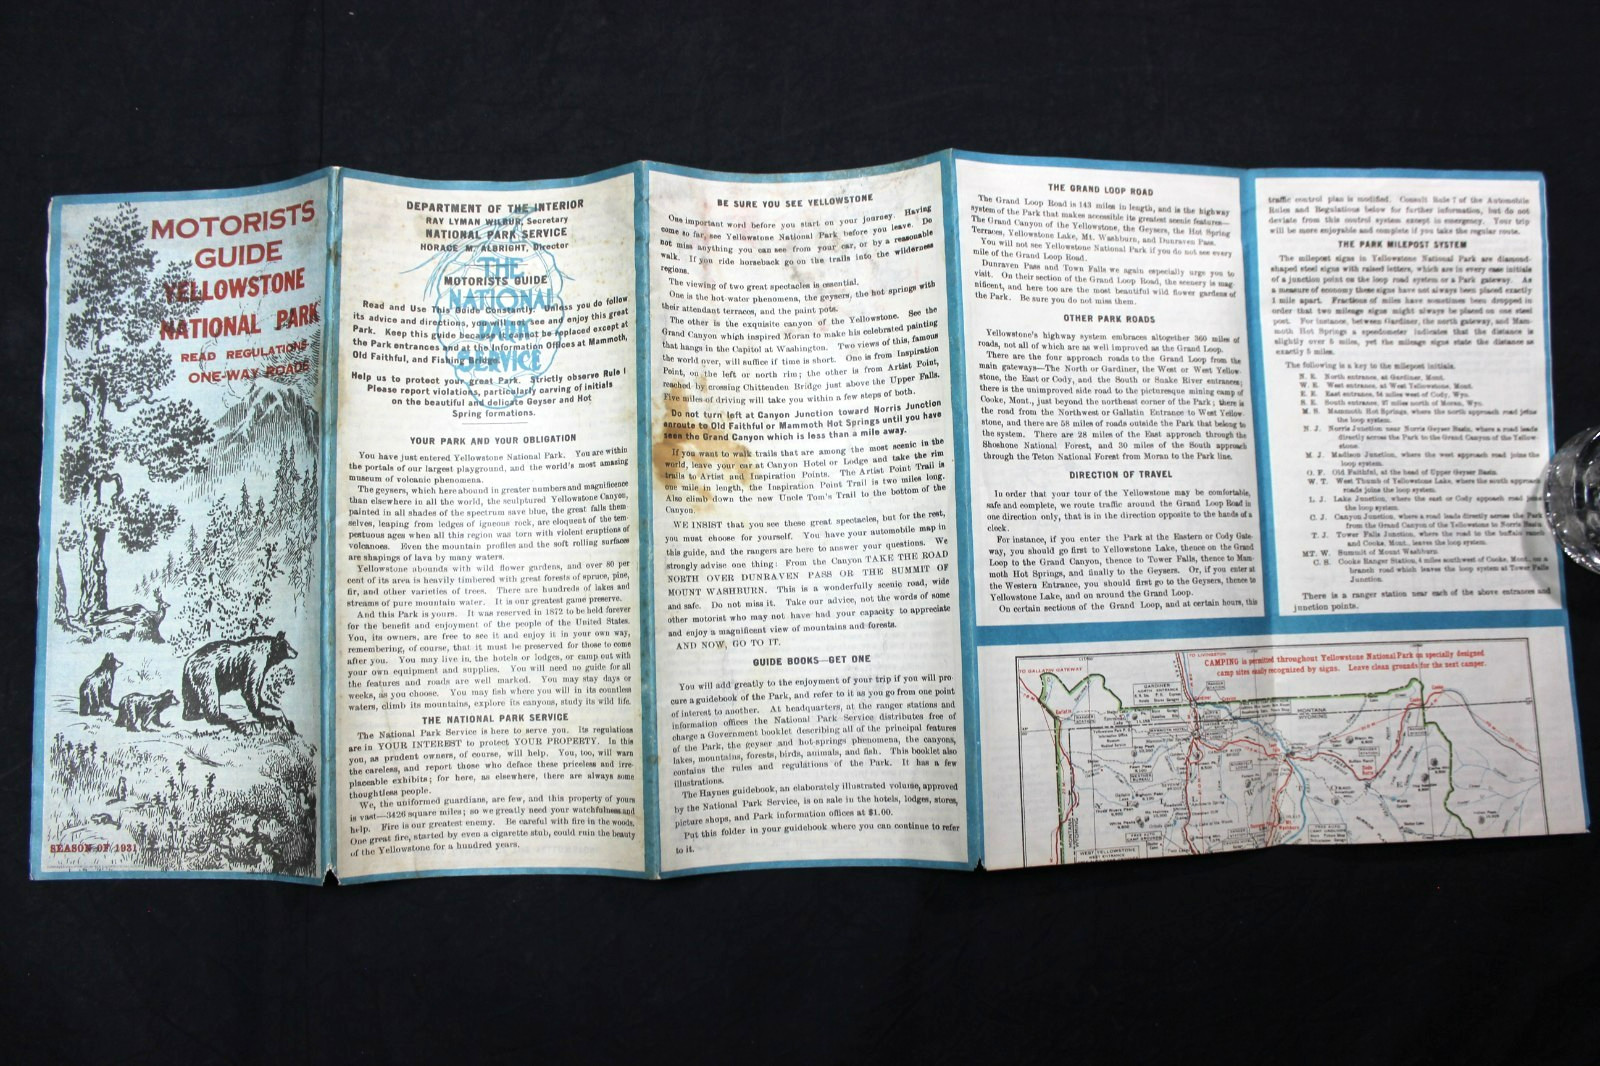 MOTORISTS
GUIDE
YELLOWSTONE
NATIONAL PARK
READ REGULATIONS-
ONE-WAY ROADS
SEASON OF 1931
DEPARTMENT OF THE INTERIOR
RAY LYMAN WILBUR, Secretary
NATIONAL PARK SERVICE
HORACE M. ALBRIGHT, Director
THE
NATIONAL
PARK
SERVICE
MOTORISTS GUIDE
Read and Use This Guide Constantly. Unless you do follow
its advice and directions, you cannot see and enjoy this great
Park. Keep this guide because it cannot be replaced except at
the Park entrances and at the Information Offices at Mammoth,
Old Faithful, and Fishing Bridge.
Help us to protect your great Park. Strictly observe Rule 1
Please report violations, particularly carving of initials
on the beautiful and delicate Geyser and Hot
Spring formations.
YOUR PARK AND YOUR OBLIGATION
You have just entered Yellowstone National Park. You are within
the portals of our largest playground, and the world's most amazing
museum of volcanic phenomena.
The geysers, which here abound in greater numbers and magnificence
than elsewhere in all the world, the sculptured Yellowstone Canyon,
painted in all shades of the spectrum save blue, the great falls them-
selves, leaping from ledges of igneous rock, are eloquent of the tem-
pestuous ages when all this region was torn with violent eruptions of
volcanoes. Even the mountain profiles and the soft rolling surfaces
are shapings of lava by many waters.
Yellowstone abounds with wild flower gardens, and over 80 per
cent of its area is heavily timbered with great forests of spruce, pine,
fir, and other varieties of trees. There are hundreds of lakes and
streams of pure mountain water. It is our greatest game preserve.
And this Park is yours. It was reserved in 1872 to be held forever
for the benefit and enjoyment of the people of the United States.
You, its owners, are free to see it and enjoy it in your own way,
remembering, of course, that it must be preserved for those to come
after you. You may live, in the hotels or lodges, or camp out with
your own equipment and supplies. You will need no guide for all
the features and roads are well marked. You may stay days or
weeks, as you choose. You may fish where you will in its countless
waters, climb its mountains, explore its canyons, study its wild life.
THE NATIONAL PARK SERVICE
The National Park Service is here to serve you. Its regulations
are in YOUR INTEREST to protect YOUR PROPERTY. In this
you, as prudent owners, of course, will help. You, too, will warn
the careless, and report those who deface these priceless and irre-
placeable exhibits; for here, as elsewhere, there are always some
thoughtless people.
We, the uniformed guardians, are few, and this property of yours
is vast—3426 square miles; so we greatly need your watchfulness and
help. Fire is our greatest enemy. Be careful with fire in the woods.
One great fire, started by even a cigarette stub, could ruin the beauty
of the Yellowstone for a hundred years.
BE SURE YOU SEE YELLOWSTONE
One important word before you start on your journey. Having
come so far, see Yellowstone National Park before you leave. Do
not miss anything you can see from your car, or by a reasonable
walk. If you ride horseback go on the trails into the wilderness
regions.
The viewing of two great spectacles is essential.
One is the hot-water phenomena, the geysers, the hot springs with
their attendant terraces, and the paint pots.
The other is the exquisite canyon of the Yellowstone. See the
Grand Canyon which inspired Moran to make his celebrated painting
that hangs in the Capitol at Washington. Two views of this, famous
the world over, will suffice if time is short. One is from Inspiration
Point, on the left or north rim; the other is from Artist Point,
reached by crossing Chittenden Bridge just above the Upper Falls.
Five miles of driving will take you within a few steps of both.
Do not turn left at Canyon Junction toward Norris Junction
enroute to Old Faithful or Mammoth Hot Springs until you have
seen the Grand Canyon which is less than a mile away.
If you want to walk trails that are among the most scenic in the
world, leave your car at Canyon Hotel or Lodge and take the rim
trails to Artist and Inspiration Points. The Artist Point Trail is
one mile in length, the Inspiration Point Trail is two miles long.
Also climb down the new Uncle Tom's Trail to the bottom of the
Canyon.
WE INSIST that you see these great spectacles, but for the rest,
you must choose for yourself. You have your automobile map in
this guide, and the rangers are here to answer your questions. We
strongly advise one thing: From the Canyon TAKE THE ROAD
NORTH OVER DUNRAVEN PASS OR THE SUMMIT OF
MOUNT WASHBURN. This is a wonderfully scenic road, wide
and safe. Do not miss it. Take our advice, not the words of some
other motorist who may not have had your capacity to appreciate
and enjoy a magnificent view of mountains and forests.
AND NOW, GO TO IT.
GUIDE BOOKS—GET ONE
You will add greatly to the enjoyment of your trip if you will pro-
cure a guidebook of the Park, and refer to it as you go from one point
of interest to another. At headquarters, at the ranger stations and
information offices the National Park Service distributes free of
charge a Government booklet describing all of the principal features
of the Park, the geyser and hot-springs phenomena, the canyons,
lakes, mountains, forests, birds, animals, and fish. This booklet also
contains the rules and regulations of the Park. It has a few
illustrations.
The Haynes guidebook, an elaborately illustrated volume, approved
by the National Park Service, is on sale in the hotels, lodges, stores,
picture shops, and Park information offices at $1.00.
Put this folder in your guidebook where you can continue to refer
to it.
THE GRAND LOOP ROAD
The Grand Loop Road is 143 miles in length, and is the highway
system of the Park that makes accessible its greatest scenic features—
The Grand Canyon of the Yellowstone, the Geysers, the Hot Spring
Terraces, Yellowstone Lake, Mt. Washburn, and Dunraven Pass.
You will not see Yellowstone National Park if you do not see every
mile of the Grand Loop Road.
Dunraven Pass and Town Falls we again especially urge you to
visit. On their section of the Grand Loop Road, the scenery is mag-
nificent, and here too are the most beautiful wild flower gardens of
the Park. Be sure you do not miss them.
OTHER PARK ROADS
Yellowstone's highway system embraces altogether 360 miles of
roads, not all of which are as well improved as the Grand Loop.
There are the four approach roads to the Grand Loop from the
main gateways—The North or Gardiner, the West or West Yellow-
stone, the East or Cody, and the South or Snake River entrances;
there is the unimproved side road to the picturesque mining camp of
Cooke, Mont., just beyond the northeast corner of the Park; there is
the road from the Northwest or Gallatin Entrance to West Yellow-
stone, and there are 58 miles of roads outside the Park that belong to
the system. There are 28 miles of the East approach through the
Shoshone National Forest, and 30 miles of the South approach
through the Teton National Forest from Moran to the Park line.
DIRECTION OF TRAVEL
In order that your tour of the Yellowstone may be comfortable,
safe and complete, we route traffic around the Grand Loop Road in
one direction only, that is in the direction opposite to the hands of a
clock.
For instance, if you enter the Park at the Eastern or Cody Gate-
way, you should go first to Yellowstone Lake, thence on the Grand
Loop to the Grand Canyon, thence to Tower Falls, thence to Mam-
moth Hot Springs, and finally to the Geysers. Or, if you enter at
the Western Entrance, you should first go to the Geysers, thence to
Yellowstone Lake, and on around the Grand Loop.
On certain sections of the Grand Loop, and at certain hours, this
traffic control plan is modified. Consult Rule 7 of the Automobile
Rules and Regulations below for further information, but do not
deviate from this control system except in emergency. Your trip
will be more enjoyable and complete if you take the regular route.
THE PARK MILEPOST SYSTEM
The milepost signs in Yellowstone National Park are diamond-
shaped steel signs with raised letters, which are in every case initials
of a junction point on the loop road system or a Park gateway. As
a measure of economy these signs have not always been placed exactly
1 mile apart. Fractions of miles have sometimes been dropped in
order that two mileage signs might always be placed on one steel
post. For instance, between Gardiner, the north gateway, and Mam-
moth Hot Springs a speedometer indicates that the distance is
slightly over 5 miles, yet the mileage signs state the distance as
exactly 5 miles.
The following is a key to the milepost initials.
N. E. North entrance, at Gardiner, Mont.
W. E. West entrance, at West Yellowstone, Mont.
E. E. East entrance, 54 miles west of Cody, Wyo.
S. E. South entrance, 27 miles north of Moran, Wyo.
M. S. Mammoth Hot Springs, where the north approach road joins
the loop system.
N. J. Norris Junction near Norris Geyser Basin, where a road leads
directly across the Park to the Grand Canyon of the Yellow-
stone.
M. J. Madison Junction, where the west approach road joins the
loop system.
O. F. Old Faithful, at the head of Upper Geyser Basin.
W. T. West Thumb of Yellowstone Lake, where the south approach
roads joins the loop system.
L. J. Lake Junction, where the east or Cody approach road joins
the loop system.
C. J. Canyon Junction, where a road leads directly across the Park
from the Grand Canyon of the Yellowstone to Norris Basin.
T. J. Tower Falls Junction, where the road to the buffalo ranch
and Cooke, Mont., leaves the loop system.
MT. W. Summit of Mount Washburn.
C. S. Cooke Ranger Station, 4 miles southwest of Cooke, Mont., on a
branch road which leaves the loop system at Tower Falls
Junction.
There is a ranger station near each of the above entrances and
junction points.
CAMPING is permitted throughout Yellowstone National Park on specially designed
camp sites easily recognized by signs. Leave clean grounds for the next camper.
TO GALLATIN GATEWAY
TO LIVINGSTON
GARDINER
NORTH ENTRANCE
MONTANA
WYOMING
WEST YELLOWSTONE